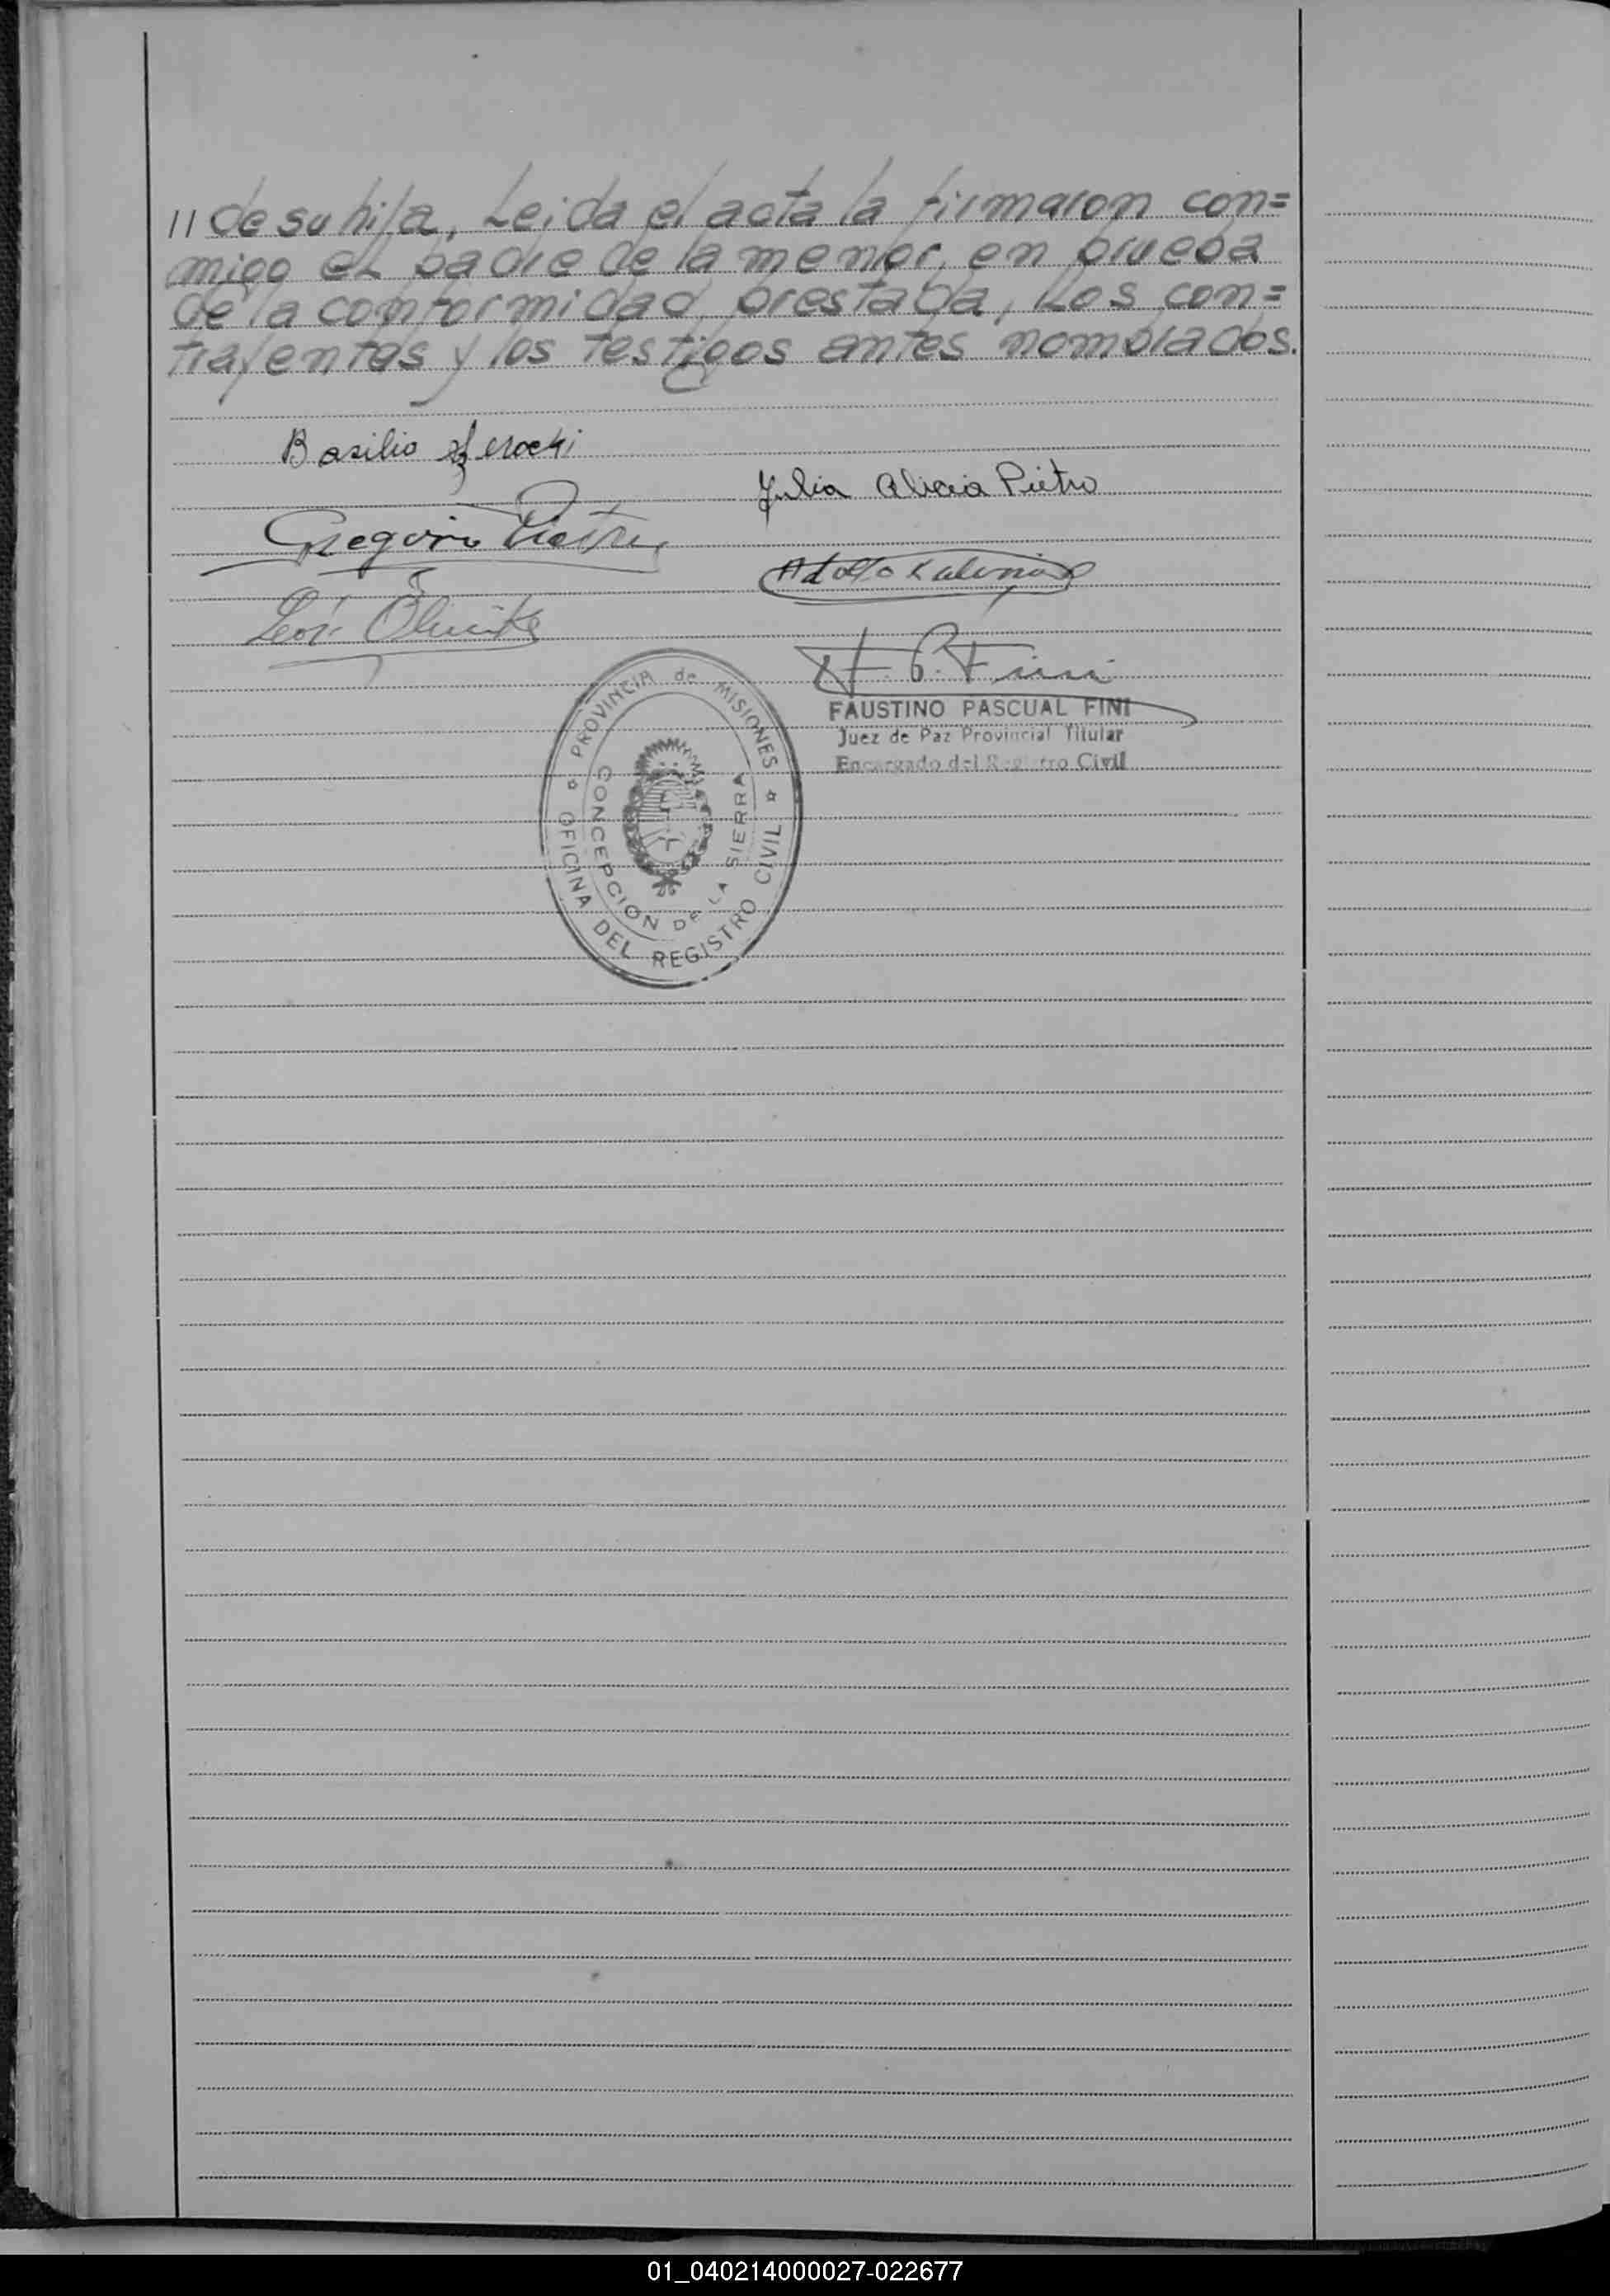 // de su hija. Leida el acta la firmaron con=
migo el padre de la menor, en prueba
de la conformidad prestada, los con=
trayentes y los testigos antes nombrados.
Basilio
Julia Alicia Pietro
Gregorio
Adolfo
León
F. P. Fini
FAUSTINO PASCUAL FINI
Juez de Paz Provincial Titular
Encargado del Registro Civil
PROVINCIA de MISIONES
CONCEPCION DE LA SIERRA
OFICINA DEL REGISTRO CIVIL
01_040214000027-022677